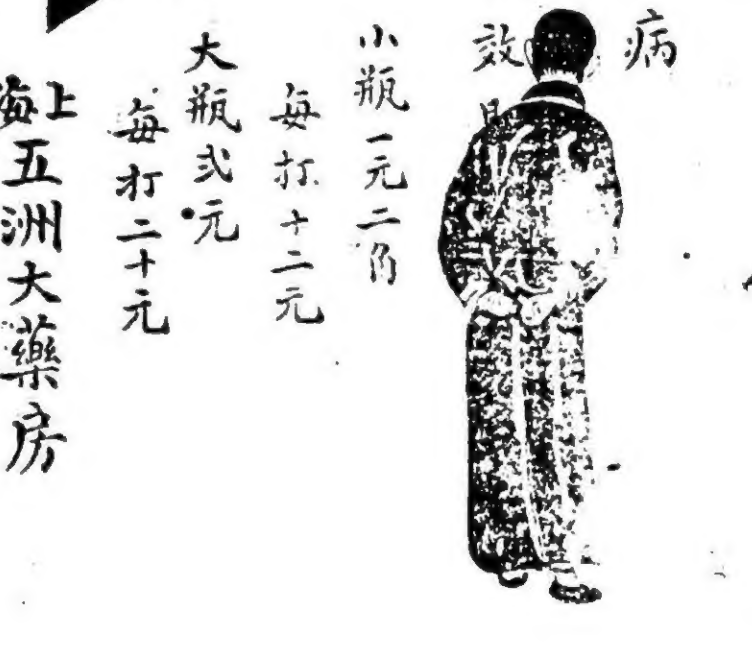 病
效
小瓶一元二角
每打十二元
大瓶弍元
每打二十元
上海五洲大藥房